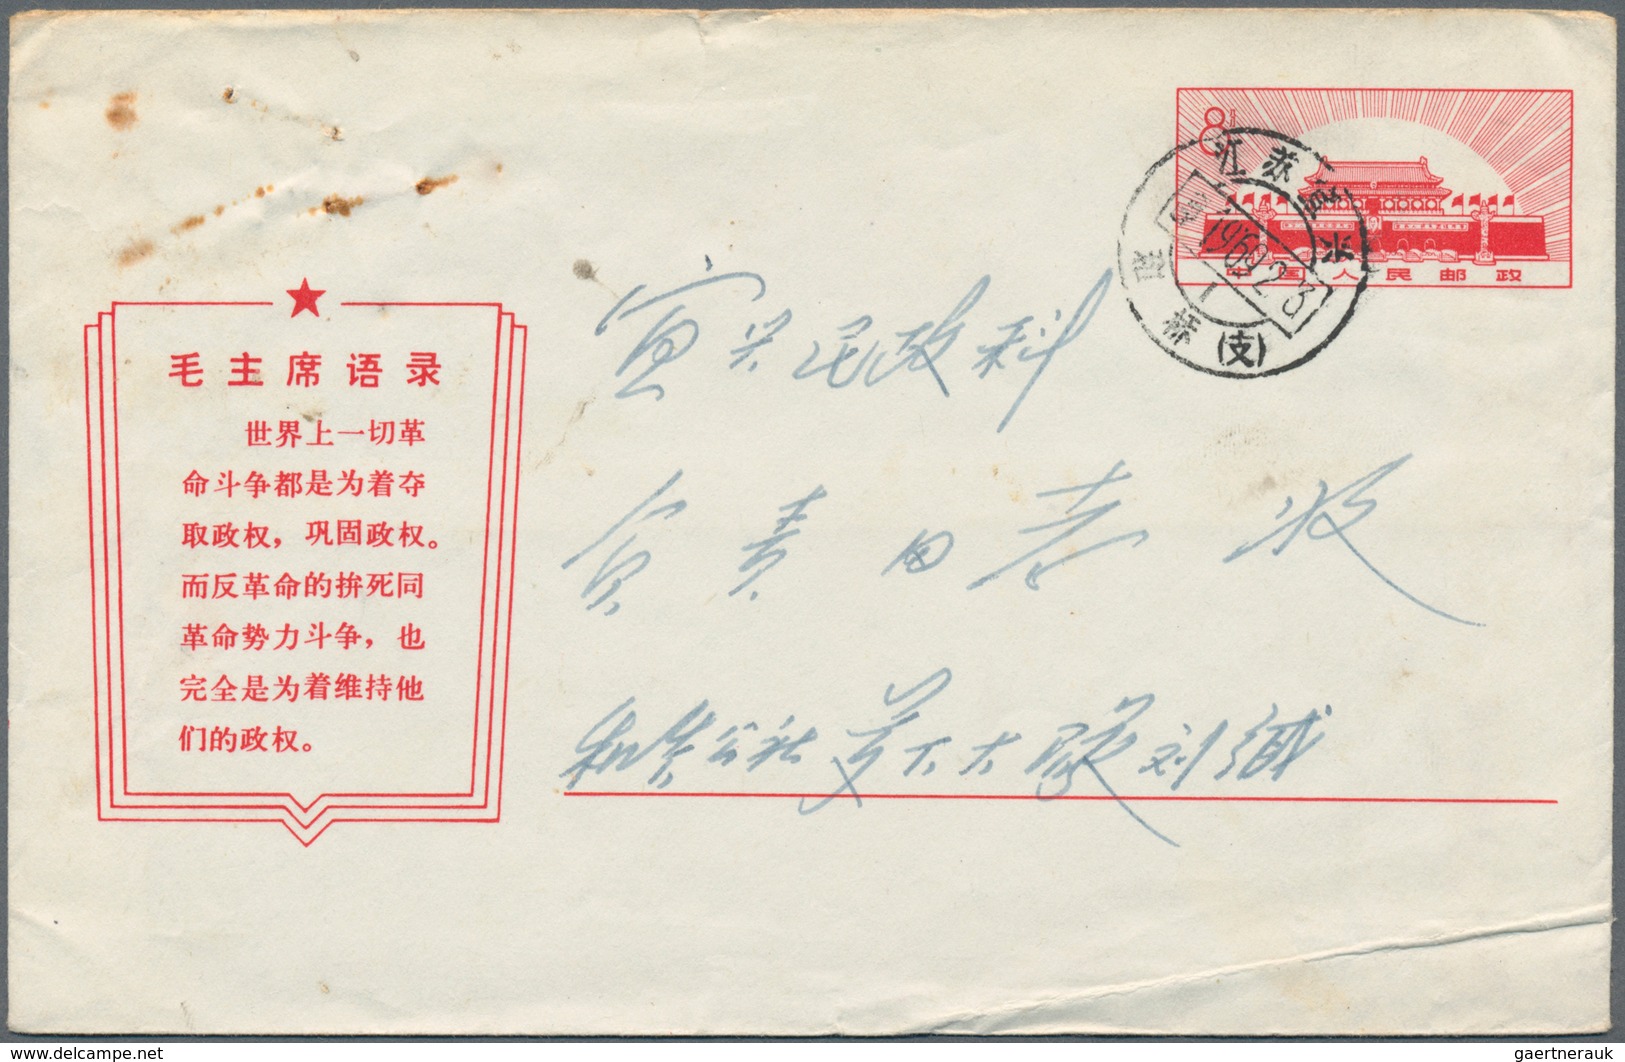 毛主席语录
世界上一切革
命斗争都是为着夺
取政权，巩固政权。
而反革命的拚死同
革命势力斗争，也
完全是为着维持他
们的政权。
8
中国人民邮政
江苏宜兴
1969.2.3
(支)
宜兴民政科
负责同志收
公社 大队 刘
www.delcampe.net
gaertnerauk